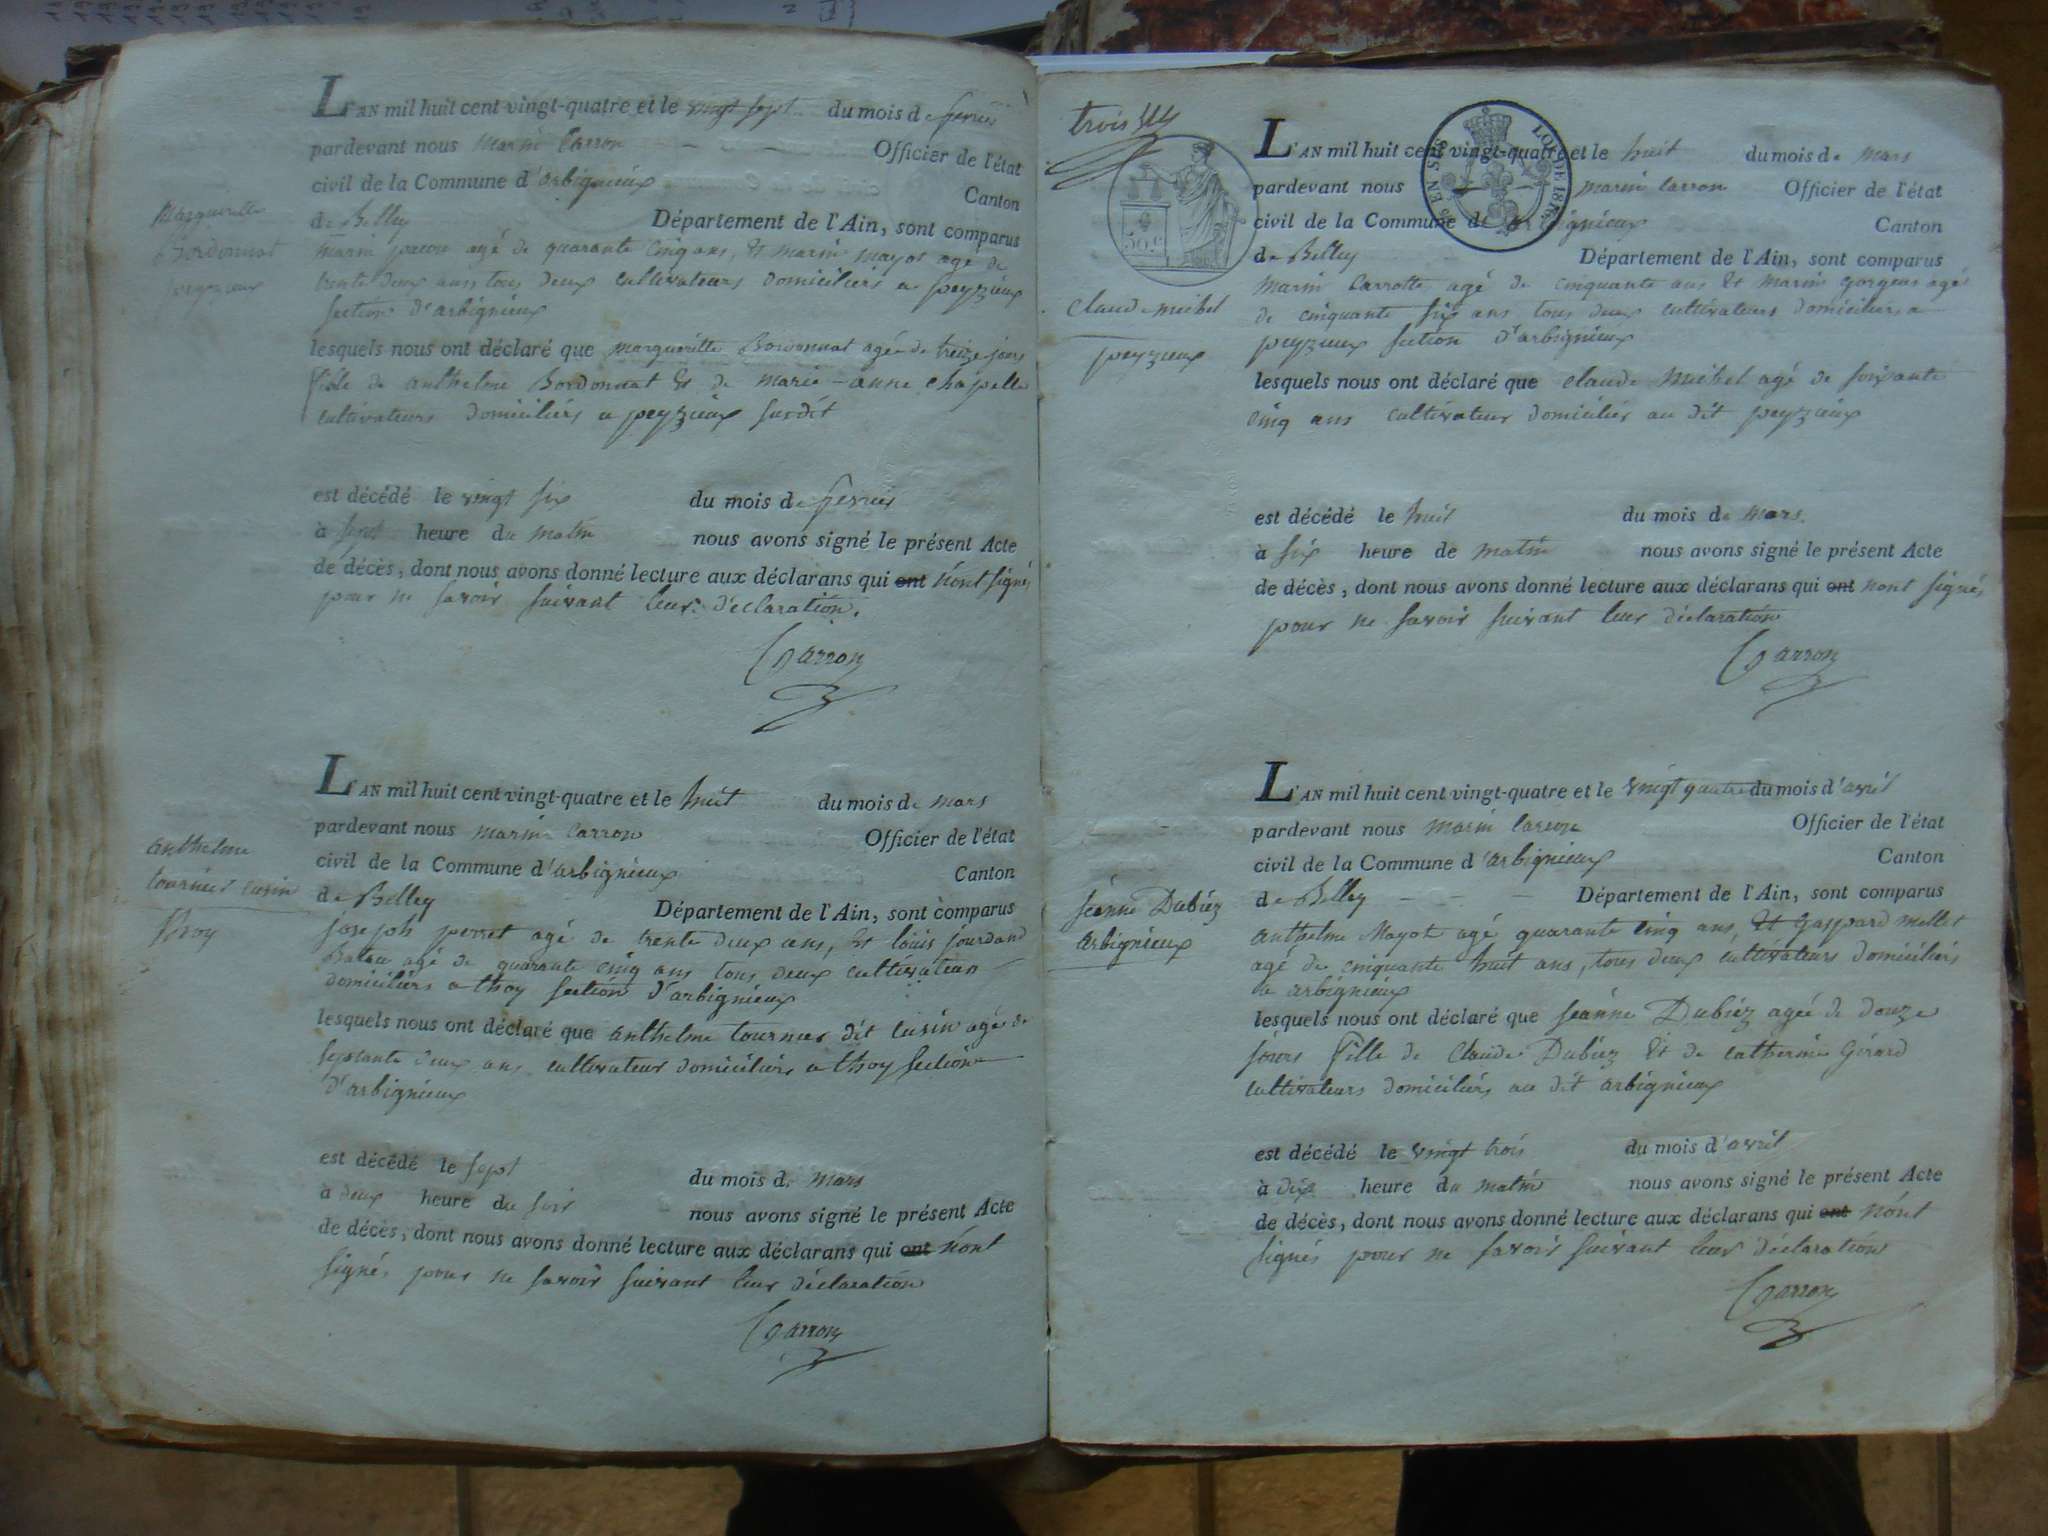 L'AN mil huit cent vingt-quatre et le vingt sept du mois de fevrier
pardevant nous Marin Carron Officier de l'état
civil de la Commune d'arbignieux Canton
de Belley Département de l'Ain, sont comparus
marin agé de quarante cinq ans, et marin mayot agé de
trente deux ans tous deux cultivateurs domiciliés a peyzieux
section d'arbignieux
lesquels nous ont déclaré que margueritte Bordonnat agée de treize jours
fille de anthelme Bordonnat et de marie-anne chapelle
cultivateurs domiciliés a peyzieux susdit
est décédé le vingt six du mois de fevrier
à heure du matin nous avons signé le présent Acte
de décès, dont nous avons donné lecture aux déclarans qui ont n'ont signés
pour ne savoir suivant leur déclaration.
Carron
Marguerite
Bordonnat
peyzieux
L'AN mil huit cent vingt-quatre et le huit du mois de mars
pardevant nous marin Carron Officier de l'état
civil de la Commune d'arbignieux Canton
de Belley Département de l'Ain, sont comparus
joseph perret agé de trente deux ans, Et louis jourdand
agé de quarante cinq ans tous deux cultivateurs
domiciliés a thoy section d'arbignieux
lesquels nous ont déclaré que anthelme tournier dit cusin agé de
septante deux ans cultivateur domiciliés a thoy section
d'arbignieux
est décédé le sept du mois de mars
à deux heure du soir nous avons signé le présent Acte
de décès, dont nous avons donné lecture aux déclarans qui ont n'ont
signés pour ne savoir suivant leur déclaration
Carron
anthelme
tournier cusin
thoy
trois
50 c
50 EN SUS LOI DE 1816
L'AN mil huit cent vingt-quatre et le huit du mois de mars
pardevant nous marin Carron Officier de l'état
civil de la Commune d'arbignieux Canton
de Belley Département de l'Ain, sont comparus
Marin Carrotte agé de cinquante ans Et Marin gorgeus agé
de cinquante six ans tous deux cultivateurs domiciliés a
peyzieux section d'arbignieux
lesquels nous ont déclaré que claude michel agé de soixante
cinq ans cultivateur domicilier au dit peyzieux
est décédé le huit du mois de mars
à six heure de matin nous avons signé le présent Acte
de décès, dont nous avons donné lecture aux déclarans qui ont n'ont signés
pour ne savoir suivant leur déclaration
Carron
Claude michel
peyzieux
L'AN mil huit cent vingt-quatre et le vingt quatre du mois d'avril
pardevant nous marin Carron Officier de l'état
civil de la Commune d'arbignieux Canton
de Belley Département de l'Ain, sont comparus
anthelme Mayot agé quarante cinq ans, Et Gaspard mellet
agé de cinquante huit ans, tous deux cultivateurs domiciliés
a arbignieux
lesquels nous ont déclaré que jeanne Dubiez agée de douze
jours fille de Claude Dubiez Et de catherine Gérard
cultivateurs domiciliés au dit arbignieux
est décédé le vingt trois du mois d'avril
à dix heure du matin nous avons signé le présent Acte
de décès, dont nous avons donné lecture aux déclarans qui ont n'ont
signés pour ne savoir suivant leur déclaration
Carron
jeanne Dubiez
arbignieux